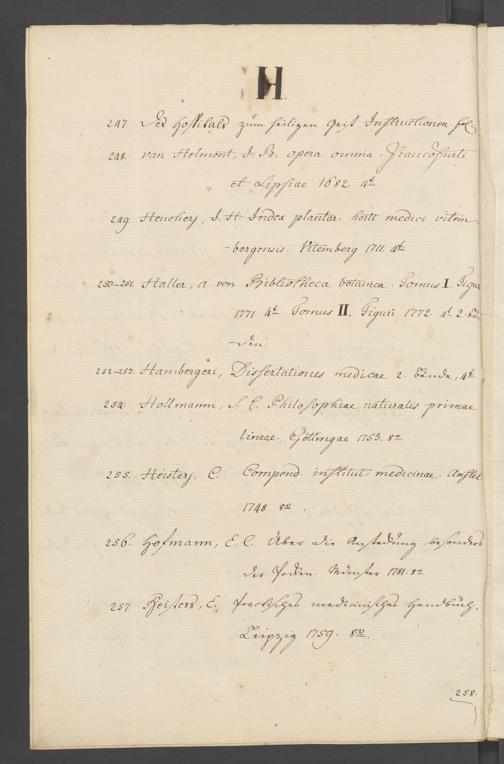 H
247. Des Hospitals zum heiligen Geist Instructionen fol
248. van Helmont, J. B. opera omnia. Francofurti
et Lipsiae 1682. 4to
249. Heucherj, J. H. Index plantar. horti medici vitem-
bergensis. Vitemberg 1711. 4to
250-251. Haller, a von Bibliotheca botanica. Tomus I. Tiguri
1771. 4to Tomus II. Tiguri 1772. 4to 2 Bän-
den.
252-253. Hambergeri, Dissertationes medicae 2 Bände, 4to
254. Hollmann, S. C. Philosophiae naturalis primae
lineae. Gottingae 1753. 8vo
255. Heisterj, C. Compend. institut: medicinae. Amstel
1748. 8vo.
256. Hofmann, E. C. Über die Ansteckung besonders
der Pocken. Münster 1781. 8vo
257. Heisters, C. practisches medicinisches Handbuch.
Leipzig 1759. 8vo.
258.